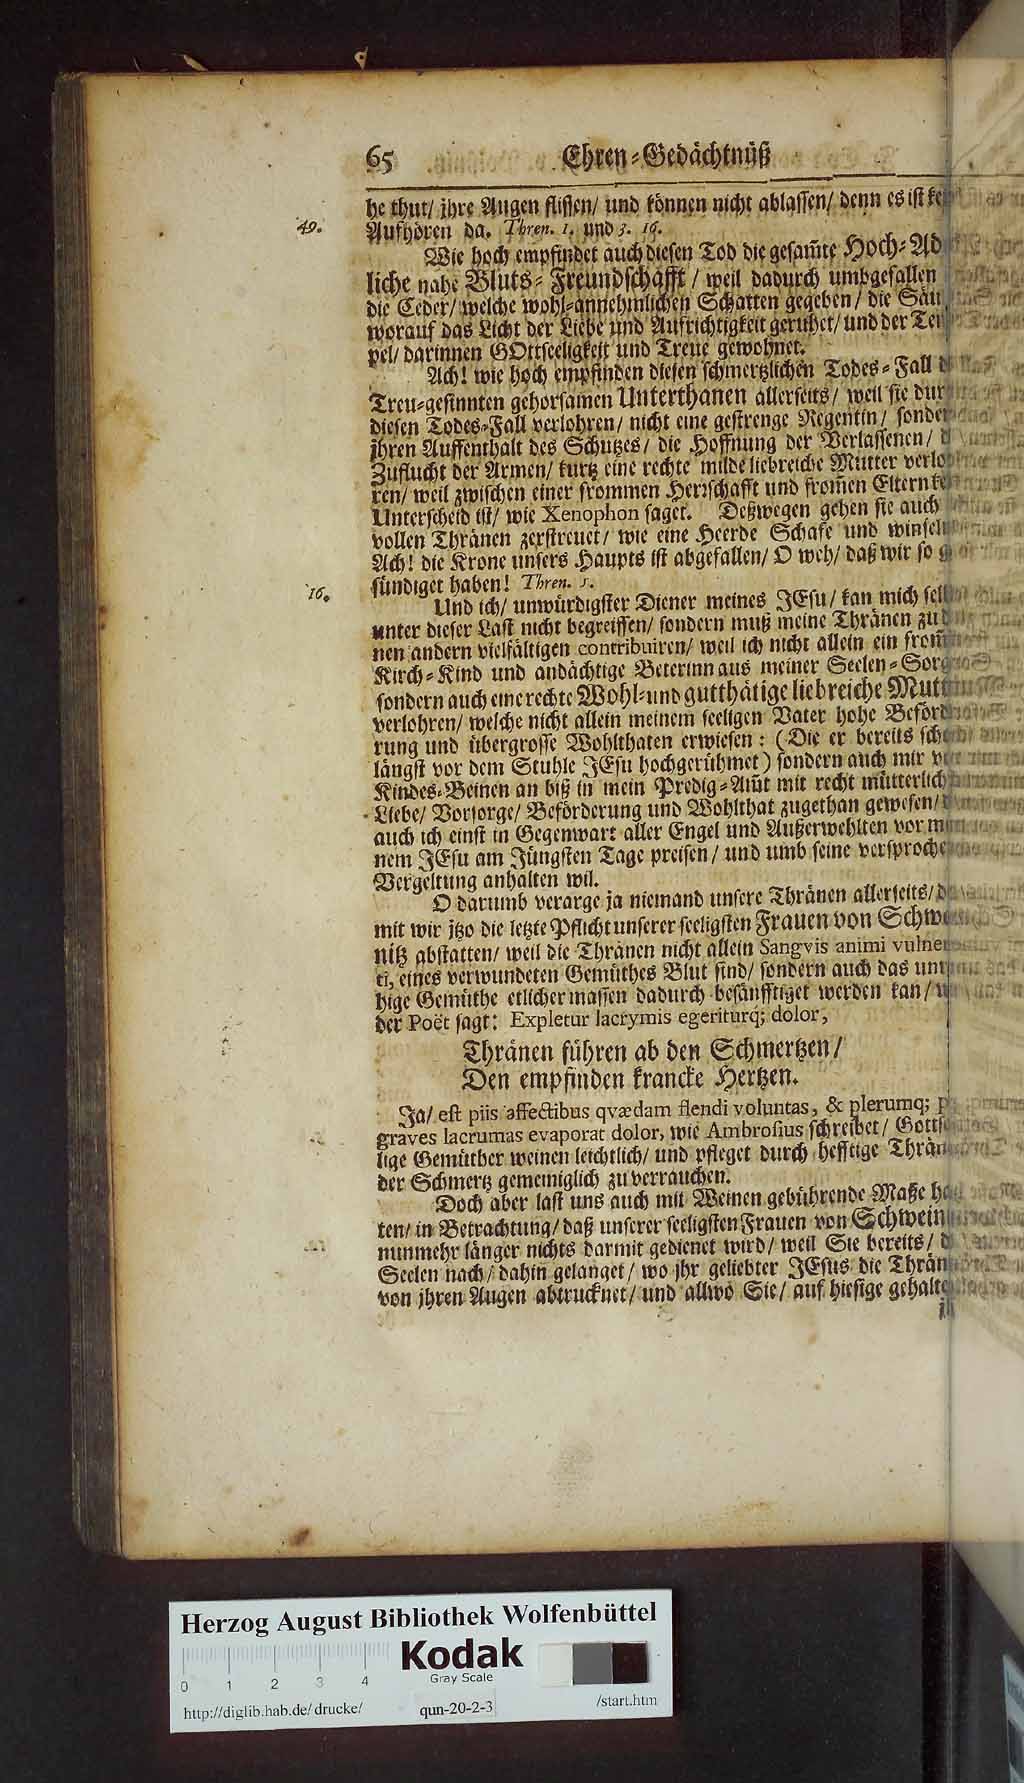 65 Ehren-Gedächtnüß
he thut/ jhre Augen flissen/ und können nicht ablassen/ denn es ist
49. Aufhören da. Thren. 1. und 3. 16.
Wie hoch empfindet auch diesen Tod die gesam̃te Hoch-Ad
liche nahe Bluts-Freundschafft/ weil dadurch umbgefallen
die Ceder/ welche wohl-annehmlichen Schatten gegeben/ die Säu
worauf das Licht der Liebe und Aufrichtigkeit geruhet/ und der Tem
pel/ darinnen GOttseeligkeit und Treue gewohnet.
Ach! wie hoch empfinden diesen schmertzlichen Todes-Fall d
Treu-gesinnten gehorsamen Unterthanen allerseits/ weil sie dur
diesen Todes-Fall verlohren/ nicht eine gestrenge Regentin/ sonder
jhren Auffenthalt des Schutzes/ die Hoffnung der Verlassenen/ d
Zuflucht der Armen/ kurtz eine rechte milde liebreiche Mutter verlo
ren/ weil zwischen einer frommen Herrschafft und from̃en Eltern ke
Unterscheid ist/ wie Xenophon saget. Deßwegen gehen sie auch
vollen Thränen zerstreuet/ wie eine Heerde Schafe und winseln
Ach! die Krone unsers Haupts ist abgefallen/ O weh/ daß wir so g
16. sündiget haben! Thren. 5.
Und ich/ unwürdigster Diener meines JEsu/ kan mich sel
unter dieser Last nicht begreiffen/ sondern muß meine Thränen zu d
nen andern vielfältigen contribuiren/ weil ich nicht allein ein from̃
Kirch-Kind und andächtige Beterinn aus meiner Seelen-Sorg
sondern auch eine rechte Wohl-und gutthätige liebreiche Mutt
verlohren/ welche nicht allein meinem seeligen Vater hohe Beförd
rung und übergrosse Wohlthaten erwiesen: (Die er bereits sch
längst vor dem Stuhle JEsu hochgerühmet) sondern auch mir v
Kindes-Beinen an biß in mein Predig-Am̃t mit recht mütterlich
Liebe/ Vorsorge/ Beförderung und Wohlthat zugethan gewesen/
auch ich einst in Gegenwart aller Engel und Außerwehlten vor m
nem JEsu am Jüngsten Tage preisen/ und umb seine versproche
Vergeltung anhalten wil.
O darumb verarge ja niemand unsere Thränen allerseits/ d
mit wir jtzo die letzte Pflicht unserer seeligsten Frauen von Schwei
nitz abstatten/ weil die Thränen nicht allein Sangvis animi vulnera
ti, eines verwundeten Gemüthes Blut sind/ sondern auch das unr
hige Gemüthe etlicher massen dadurch besänfftiget werden kan/ w
der Poët sagt: Expletur lacrymis egeriturq; dolor,
Thränen führen ab den Schmertzen/
Den empfinden krancke Hertzen.
Ja/ est piis affectibus qvædam flendi voluntas, & plerumq; p
graves lacrumas evaporat dolor, wie Ambrosius schreibet/ Gottse
lige Gemüther weinen leichtlich/ und pfleget durch hefftige Thrän
der Schmertz gemeiniglich zu verrauchen.
Doch aber last uns auch mit Weinen gebührende Maße ha
ten/ in Betrachtung/ daß unserer seeligsten Frauen von Schwein
nunmehr länger nichts darmit gedienet wird/ weil Sie bereits/ d
Seelen nach/ dahin gelanget/ wo jhr geliebter JEsus die Thrän
von jhren Augen abtrucknet/ und allwo Sie/ auf hiesige gehalte
Herzog August Bibliothek Wolfenbüttel
Kodak
Gray Scale
0 1 2 3 4
http://diglib.hab.de/drucke/ qun-20-2-3 /start.htm